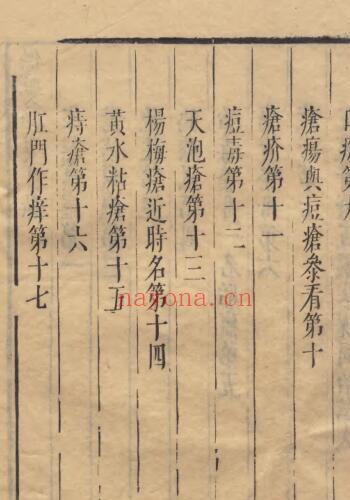 瘡瘍與痘瘡參看第十
瘡疥第十一
痘毒第十二
天泡瘡第十三
楊梅瘡近時名第十四
黃水粘瘡第十五
痔瘡第十六
肛門作痒第十七
nayona.cn